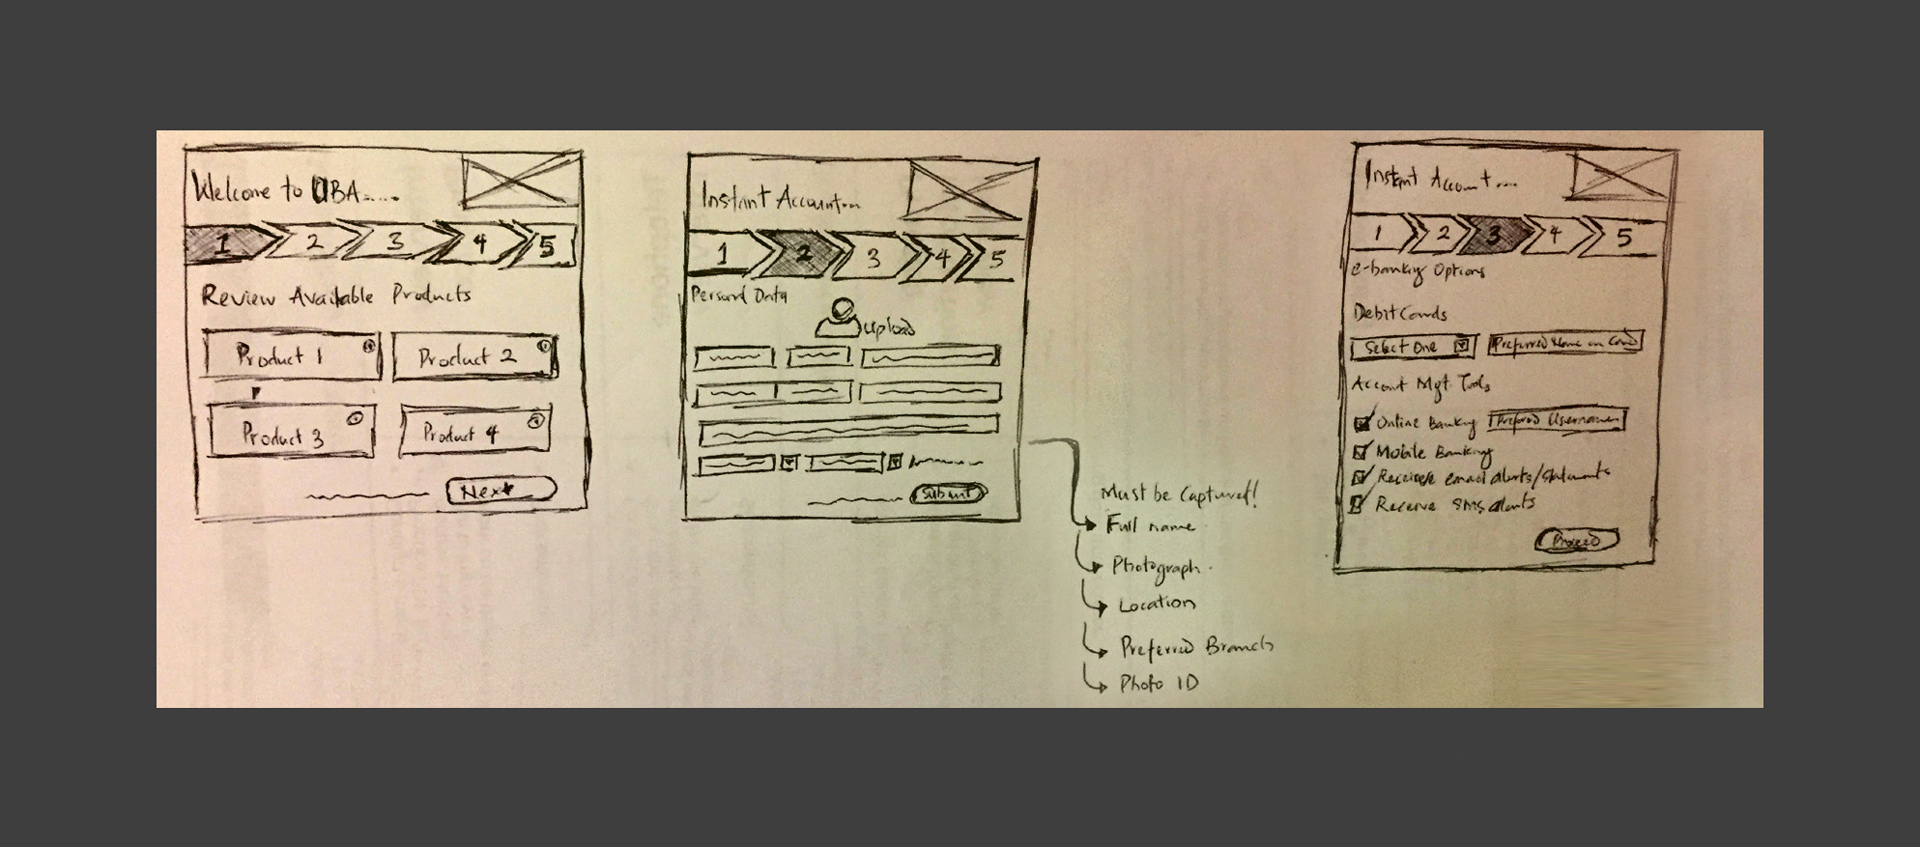 Welcome to UBA.....
1 2 3 4 5
Review Available Products
Product 1 Product 2
Product 3 Product 4
Next
Instant Account...
1 2 3 4 5
Personal Data
upload
Submit
Must be Captured!
Full name
Photograph.
Location
Preferred Branch
Photo ID
Instant Account...
1 2 3 4 5
e-banking Options
Debit Cards
Select One Preferred Name on Card
Account Mgt Tools
Online Banking Preferred Username
Mobile Banking
Receive email alerts/statements
Receive SMS alerts
Proceed